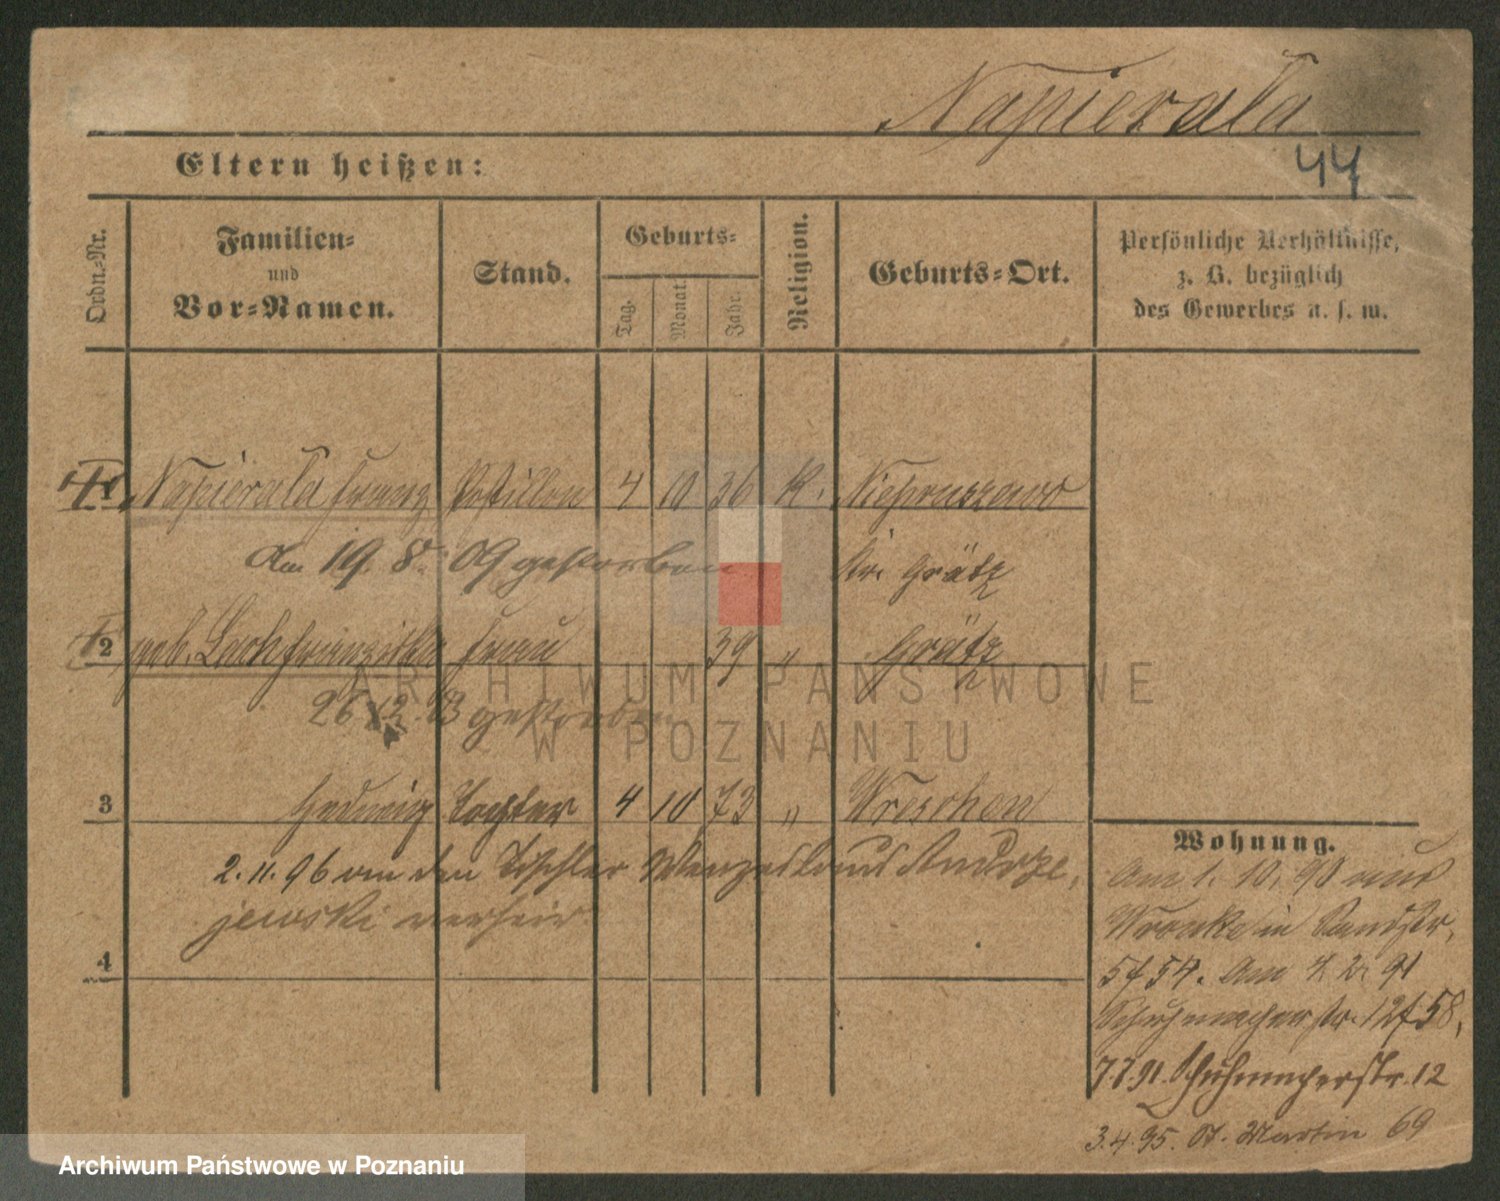 Napierala
44
Eltern heißen:
Ordn.-Nr.
Familien-
und
Vor-Namen.
Stand.
Geburts-
Tag.
Monat.
Jahr.
Religion.
Geburts-Ort.
Persönliche Verhältnisse,
z. B. bezüglich
des Gewerbes u. s. w.
Napierala Franz Postillon 4 10 36 K. Niepruszewo
Am 19. 8. 09 gestorben Kr. Grätz
2 geb. Lach Franziska Frau 39 " Grätz
26 12. 13 gestorben
3 Hedwig Tochter 4 10 73 " Wreschen
2. 11. 96 an den Tischler Wenzeslaus Andrze-
jewski verheir.
4
Wohnung.
Am 1. 10. 90 aus
Wronke in Sandstr.
5 f 54. Am 4. 2. 91
Schuhmacherstr. 12 f 58,
7.7.91. Schuhmacherstr. 12
3.4.95. St. Martin 69
ARCHIWUM PAŃSTWOWE
W POZNANIU
Archiwum Państwowe w Poznaniu